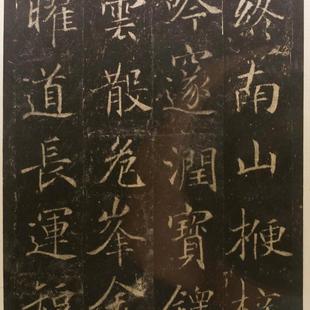 終南山楩
吟邃潤寶
雲散危峯金
曜道長運